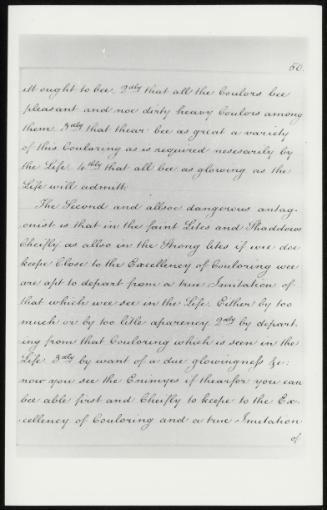 60.
itt ought to bee. 2dly that all the Coulors bee
pleasant and noe dirty heavy Coulors among
them. 3dly that thear bee as great a variety
of this Coularing as is required nesesarily by
the Life. 4thly that all bee as glowing as the
Life will admitt.
The Second and allsoe dangerous antag-
onist is that in the faint Lites and Shaddows
Cheifly as allso in the Strong lites if wee doe
keepe Close to the Excellency of Couloring wee
are apt to depart from a true Imitation of
that which wee see in the Life. Either by too
much or by too litle aparency. 2dly by depart-
ing from that Couloring which is seen in the
Life. 3dly by want of a due glowingness &c:
now you see the Enimyes if thearfor you can
bee able first and Cheifly to keepe to the Ex-
cellency of Couloring and a true Imitation
of